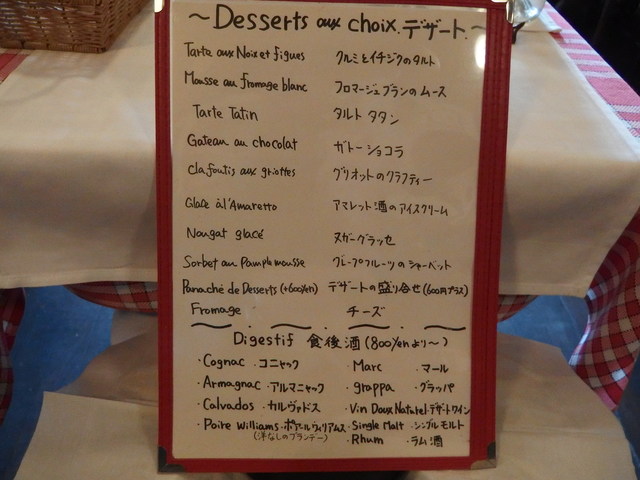 ～Desserts aux choix.デザート.～
Tarte aux Noix et figues クルミとイチジクのタルト
Mousse au fromage blanc フロマージュブランのムース
Tarte Tatin タルト タタン
Gateau au chocolat ガトーショコラ
clafoutis aux griottes グリオットのクラフティー
Glace à l'Amaretto アマレット酒のアイスクリーム
Nougat glacé ヌガーグラッセ
Sorbet au Pamplemousse グレープフルーツのシャーベット
Panaché de Desserts (+600yen) デザートの盛り合せ(600円プラス)
Fromage チーズ
Digestif 食後酒(800yenより～)
・Cognac・コニャック ・Marc ・マール
・Armagnac・アルマニャック ・grappa ・グラッパ
・Calvados・カルヴァドス ・Vin Doux Naturel デザートワイン
・Poire Williams・ポアールウィリアムス ・Single Malt・シングルモルト
(洋なしのブランデー) ・Rhum ・ラム酒